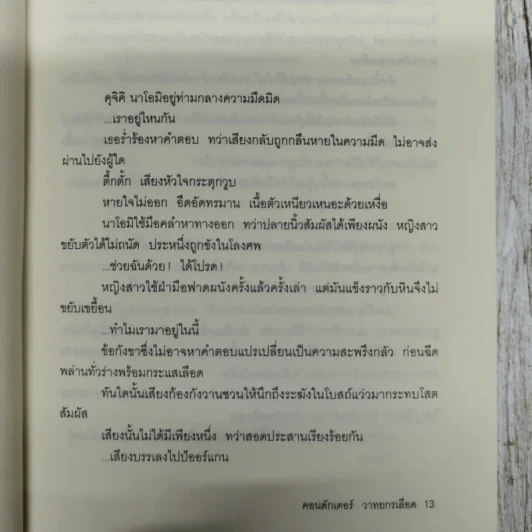 คุจิคิ นาโอมิอยู่ท่ามกลางความมืดมิด
...เราอยู่ไหนกัน
เธอร่ำร้องหาคำตอบ ทว่าเสียงกลับถูกกลืนหายในความมืด ไม่อาจส่ง
ผ่านไปยังผู้ใด
ตึ้กตั้ก เสียงหัวใจกระตุกวูบ
หายใจไม่ออก อึดอัดทรมาน เนื้อตัวเหนียวเหนอะด้วยเหงื่อ
นาโอมิใช้มือคลำหาทางออก ทว่าปลายนิ้วสัมผัสได้เพียงผนัง หญิงสาว
ขยับตัวได้ไม่ถนัด ประหนึ่งถูกขังในโลงศพ
...ช่วยฉันด้วย! ได้โปรด!
หญิงสาวใช้ฝ่ามือฟาดผนังครั้งแล้วครั้งเล่า แต่มันแข็งราวกับหินจึงไม่
ขยับเขยื้อน
...ทำไมเรามาอยู่ในนี้
ข้อกังขาซึ่งไม่อาจหาคำตอบแปรเปลี่ยนเป็นความสะพรึงกลัว ก่อนฉีด
พล่านทั่วร่างพร้อมกระแสเลือด
ทันใดนั้นเสียงก้องกังวานชวนให้นึกถึงระฆังในโบสถ์แว่วมากระทบโสต
สัมผัส
เสียงนั้นไม่ได้มีเพียงหนึ่ง ทว่าสอดประสานเรียงร้อยกัน
...เสียงบรรเลงไปป์ออร์แกน
คอนดักเตอร์ วาทยกรเลือด 13